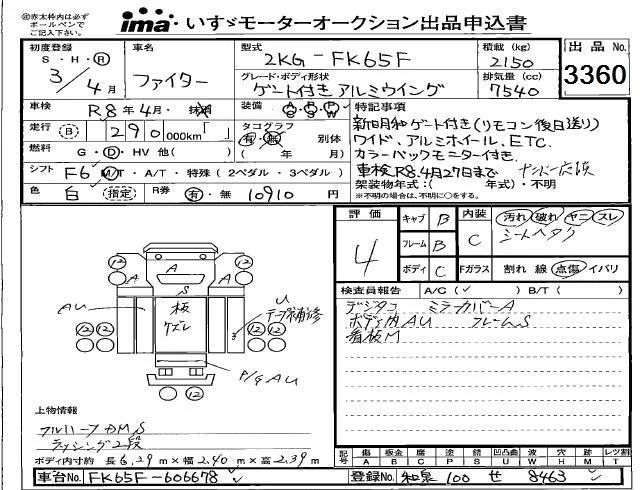 ㊟赤太枠内は必ず
ボールペンで
ご記入下さい。
ima いすゞモーターオークション出品申込書
初度登録
S・H・Ⓡ
3/4月
車名
ファイター
型式
2KG-FK65F
積載(kg)
2150
出品No.
3360
グレード・ボディ形状
ゲート付きアルミウイング
排気量(cc)
7540
車検
R8年4月・抹消
装備
A/C P/S P/W
特記事項
新明和ゲート付き(リモコン後日送り)
ワイド、アルミホイール、ETC.
カラーバックモニター付き.
車検R8.4月27日まで
架装物年式:( 年式)・不明
※不明の場合は、不明に○をする。
走行
Ⓑ 290 000km「 」
タコグラフ
有・無 別体
( 年 月)
燃料
G・Ⓓ・HV 他( )
シフト
F6 M/T・A/T・特殊(2ペダル・3ペダル)
色
白 (指定)
R券
有・無 10910円
評価
4
キャブ B
フレーム B
ボディ C
内装
C
汚れ 破れ ヤニ スレ
シートヘタク
Fガラス
割れ 線 点傷 イバリ
検査員報告
A/C(✓ ) B/T( )
デジタコ ミラーカバーA
ボディ内AU フレームS
看板M
12 12
12 12
A
A A
S
AU
板
ケズレ
U
テープ補修
12 12 12 12
P/G AU
12
上物情報
フルハーフ DM S
ラッシング2段
ボディ内寸約 長6.29m×幅2.40m×高2.39m
記号
傷 板金 腐 塗 錆 凹凸曲 波 穴 跡 レツ割
A B C P S U W H M T
車台No.
FK65F-606678
登録No.
和泉 100 せ 8463